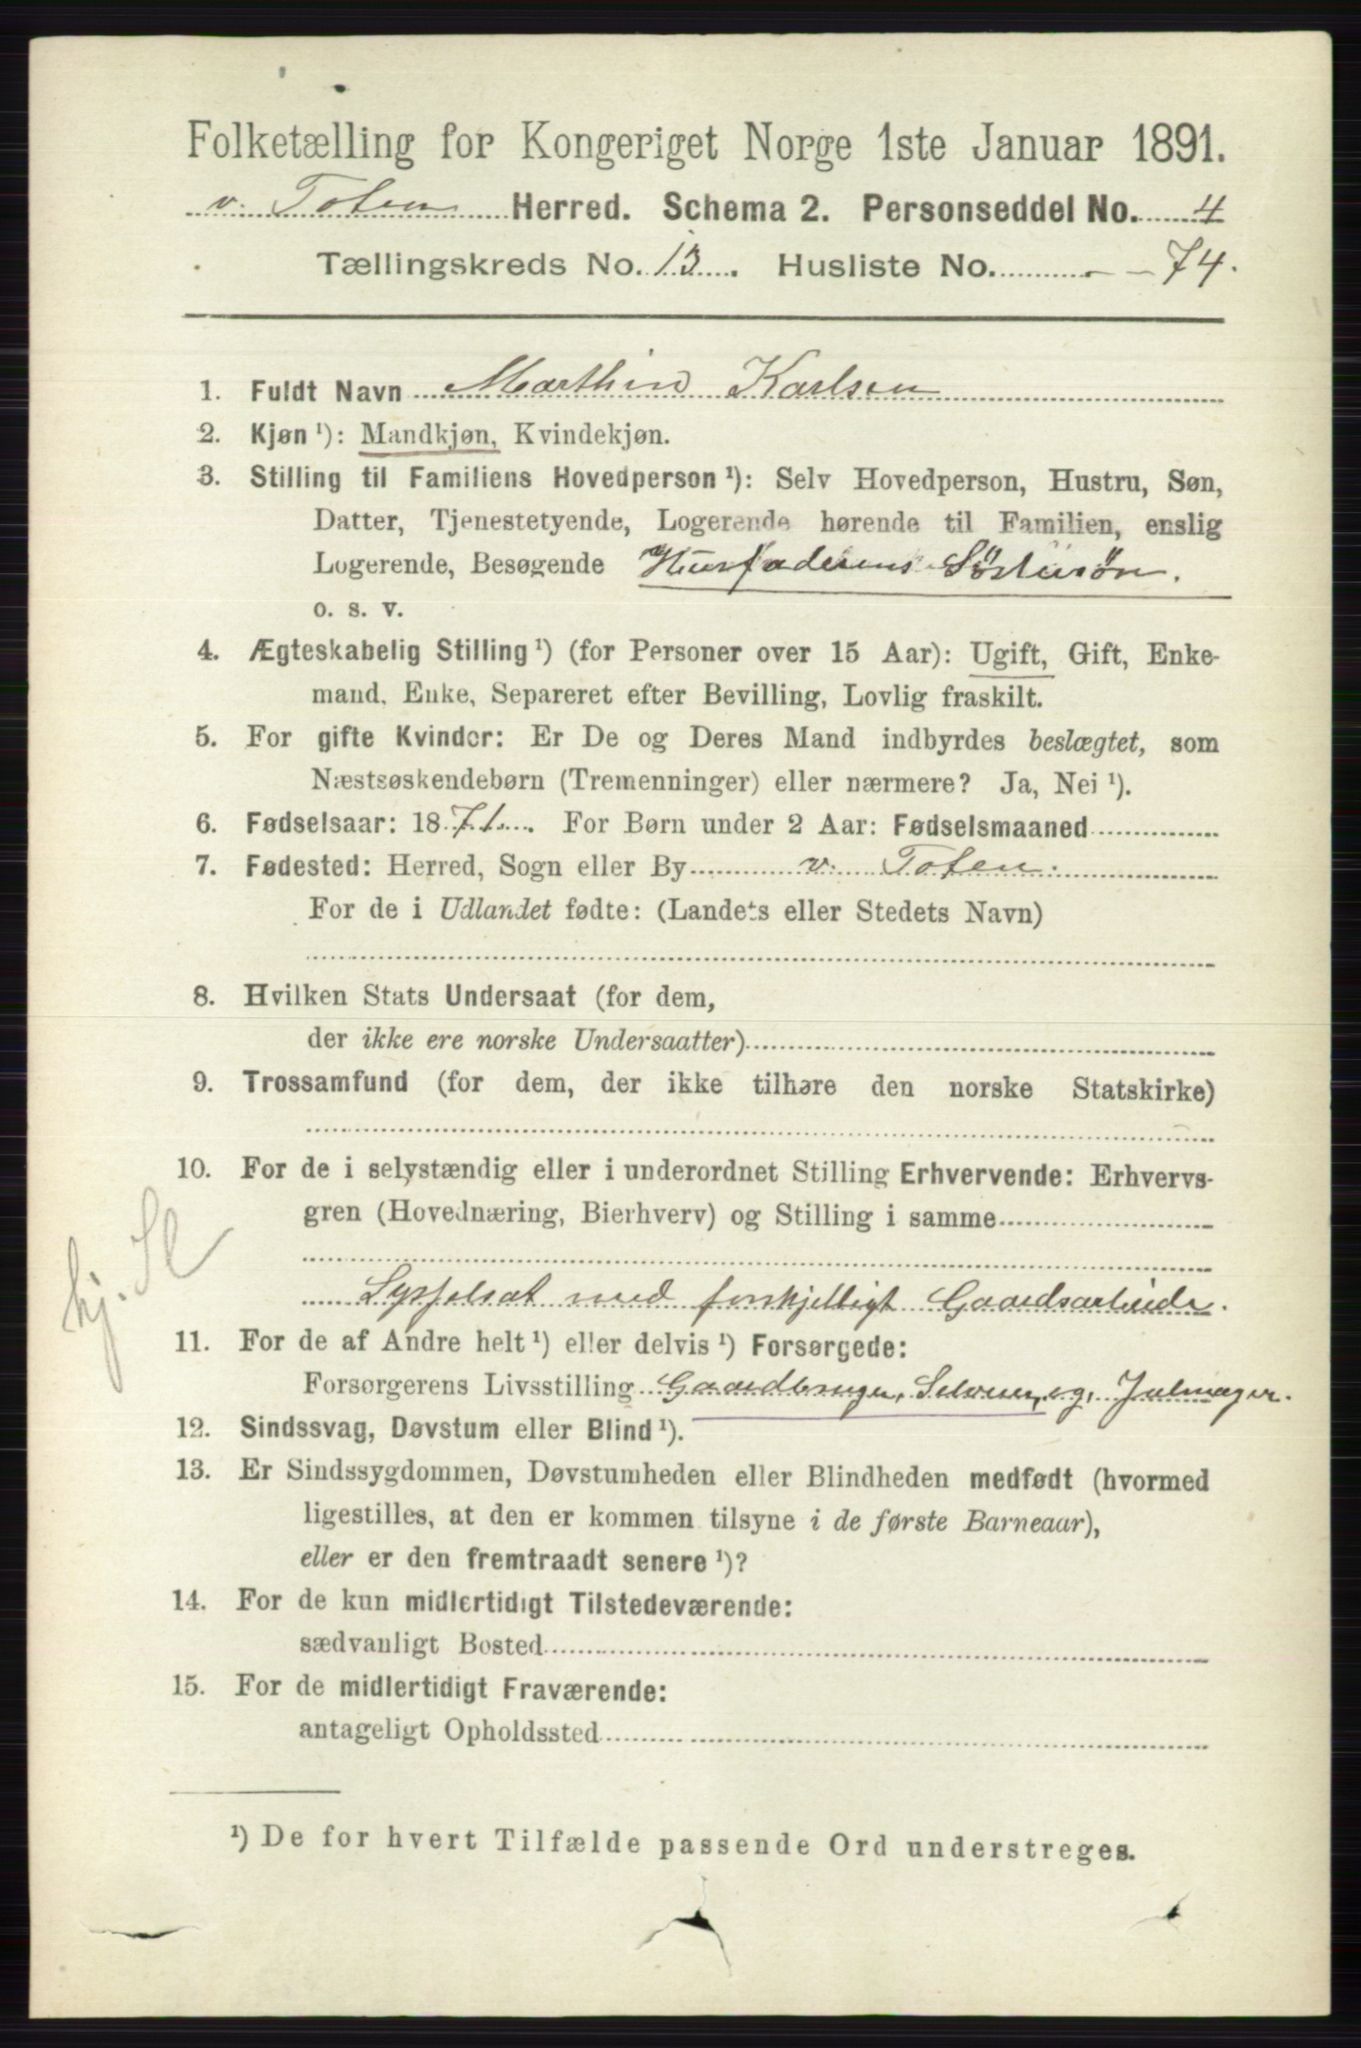 Folketælling for Kongeriget Norge 1ste Januar 1891.
v. Toten Herred. Schema 2. Personseddel No. 4
Tællingskreds No. 13. Husliste No. - 74.
1. Fuldt Navn Marthin Karlsen
2. Kjøn ¹): Mandkjøn, Kvindekjøn.
3. Stilling til Familiens Hovedperson ¹): Selv Hovedperson, Hustru, Søn,
Datter, Tjenestetyende, Logerende hørende til Familien, enslig
Logerende, Besøgende Husfaderens Søstersøn.
o. s. v.
4. Ægteskabelig Stilling ¹) (for Personer over 15 Aar): Ugift, Gift, Enke-
mand, Enke, Separeret efter Bevilling, Lovlig fraskilt.
5. For gifte Kvinder: Er De og Deres Mand indbyrdes beslægtet, som
Næstsøskendebørn (Tremenninger) eller nærmere? Ja, Nei ¹).
6. Fødselsaar: 1871. For Børn under 2 Aar: Fødselsmaaned
7. Fødested: Herred, Sogn eller By v. Toten.
For de i Udlandet fødte: (Landets eller Stedets Navn)
8. Hvilken Stats Undersaat (for dem,
der ikke ere norske Undersaatter)
9. Trossamfund (for dem, der ikke tilhøre den norske Statskirke)
10. For de i selvstændig eller i underordnet Stilling Erhvervende: Erhvervs-
gren (Hovednæring, Bierhverv) og Stilling i samme
hj. Sl
Sysselsat med forskjelligt Gaardsarbeide.
11. For de af Andre helt ¹) eller delvis ¹) Forsørgede:
Forsørgerens Livsstilling Gaardbruger, Selveier, og,
12. Sindssvag, Døvstum eller Blind ¹).
13. Er Sindssygdommen, Døvstumheden eller Blindheden medfødt (hvormed
ligestilles, at den er kommen tilsyne i de første Barneaar),
eller er den fremtraadt senere ¹)?
14. For de kun midlertidigt Tilstedeværende:
sædvanligt Bosted
15. For de midlertidigt Fraværende:
antageligt Opholdssted
¹) De for hvert Tilfælde passende Ord understreges.